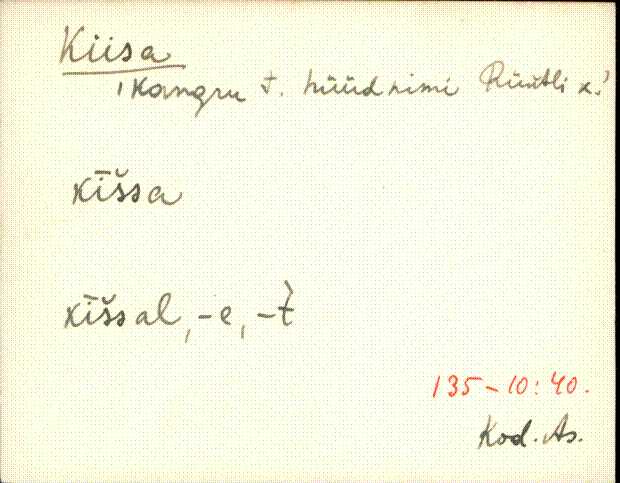 Kiisa
'Kangru t. hüüdnimi Rüütli k.'
kīšsa
kīšsal, -e, -t̀
135-10:40.
Kod. As.